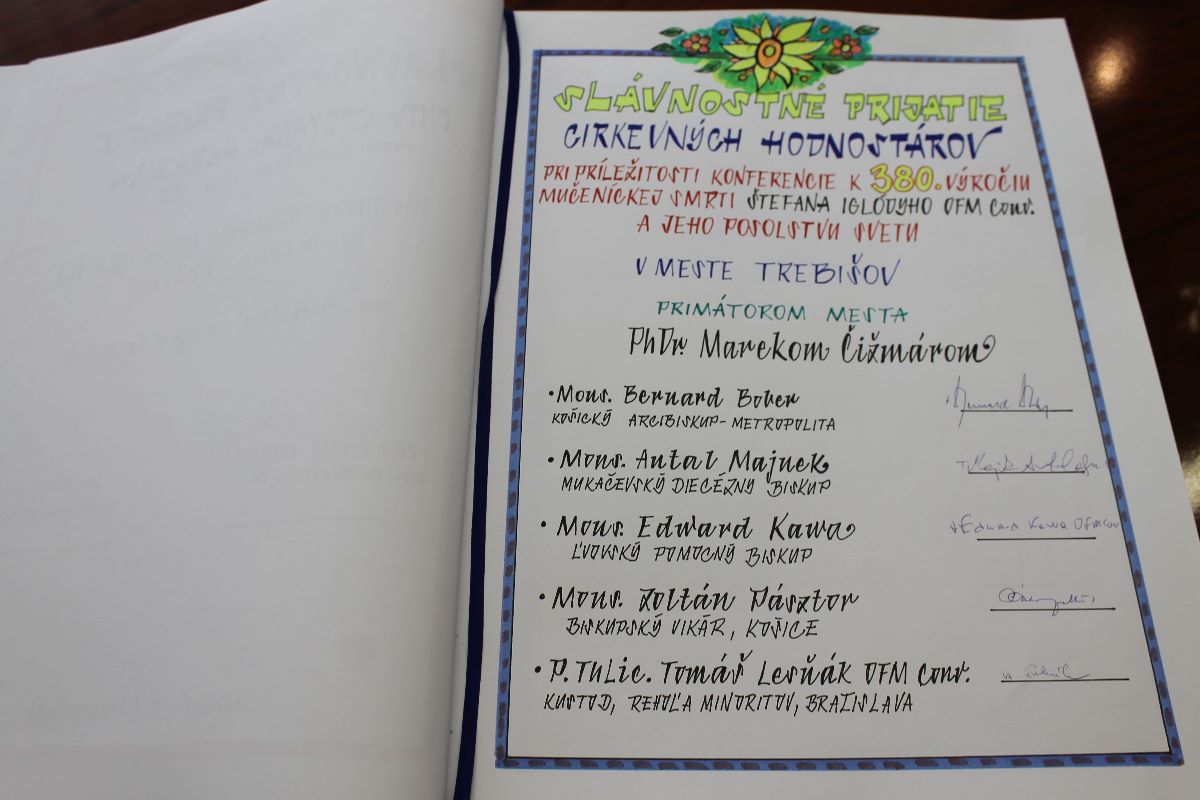 SLÁVNOSTNÉ PRIJATIE
CIRKEVNÝCH HODNOSTÁROV
PRI PRÍLEŽITOSTI KONFERENCIE K 380. VÝROČIU
MUČENÍCKEJ SMRTI ŠTEFANA IGLÓDYHO OFM Conv.
A JEHO POSOLSTVU SVETU
V MESTE TREBIŠOV
PRIMÁTOROM MESTA
PhDr. Marekom Čižmárom
• Mons. Bernard Bober
KOŠICKÝ ARCIBISKUP-METROPOLITA
• Mons. Antal Majnek
MUKAČEVSKÝ DIECÉZNY BISKUP
• Mons. Edward Kawa
ĽVOVSKÝ POMOCNÝ BISKUP
+ Edward Kawa OFMConv
• Mons. Zoltán Pásztor
BISKUPSKÝ VIKÁR, KOŠICE
• P. ThLic. Tomáš Lesňák OFM Conv.
KUSTOD, REHOĽA MINORITOV, BRATISLAVA